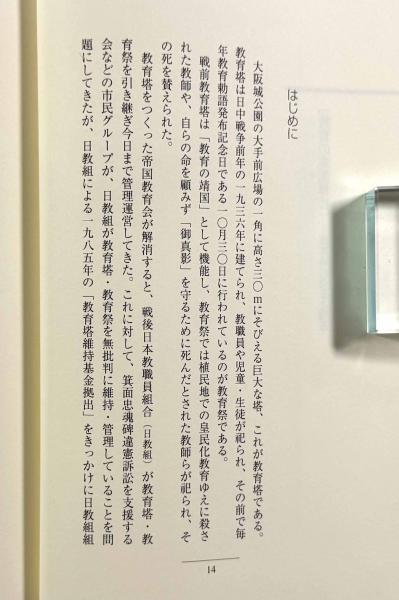 はじめに
大阪城公園の大手前広場の一角に高さ三〇mにそびえる巨大な塔、これが教育塔である。
教育塔は日中戦争前年の一九三六年に建てられ、教職員や児童・生徒が祀られ、その前で毎
年教育勅語発布記念日である一〇月三〇日に行われているのが教育祭である。
戦前教育塔は「教育の靖国」として機能し、教育祭では植民地での皇民化教育ゆえに殺さ
れた教師や、自らの命を顧みず「御真影」を守るために死んだとされた教師らが祀られ、そ
の死を賛えられた。
教育塔をつくった帝国教育会が解消すると、戦後日本教職員組合（日教組）が教育塔・教
育祭を引き継ぎ今日まで管理運営してきた。これに対して、箕面忠魂碑違憲訴訟を支援する
会などの市民グループが、日教組が教育塔・教育祭を無批判に維持・管理していることを問
題にしてきたが、日教組による一九八五年の「教育塔維持基金拠出」をきっかけに日教組組
14